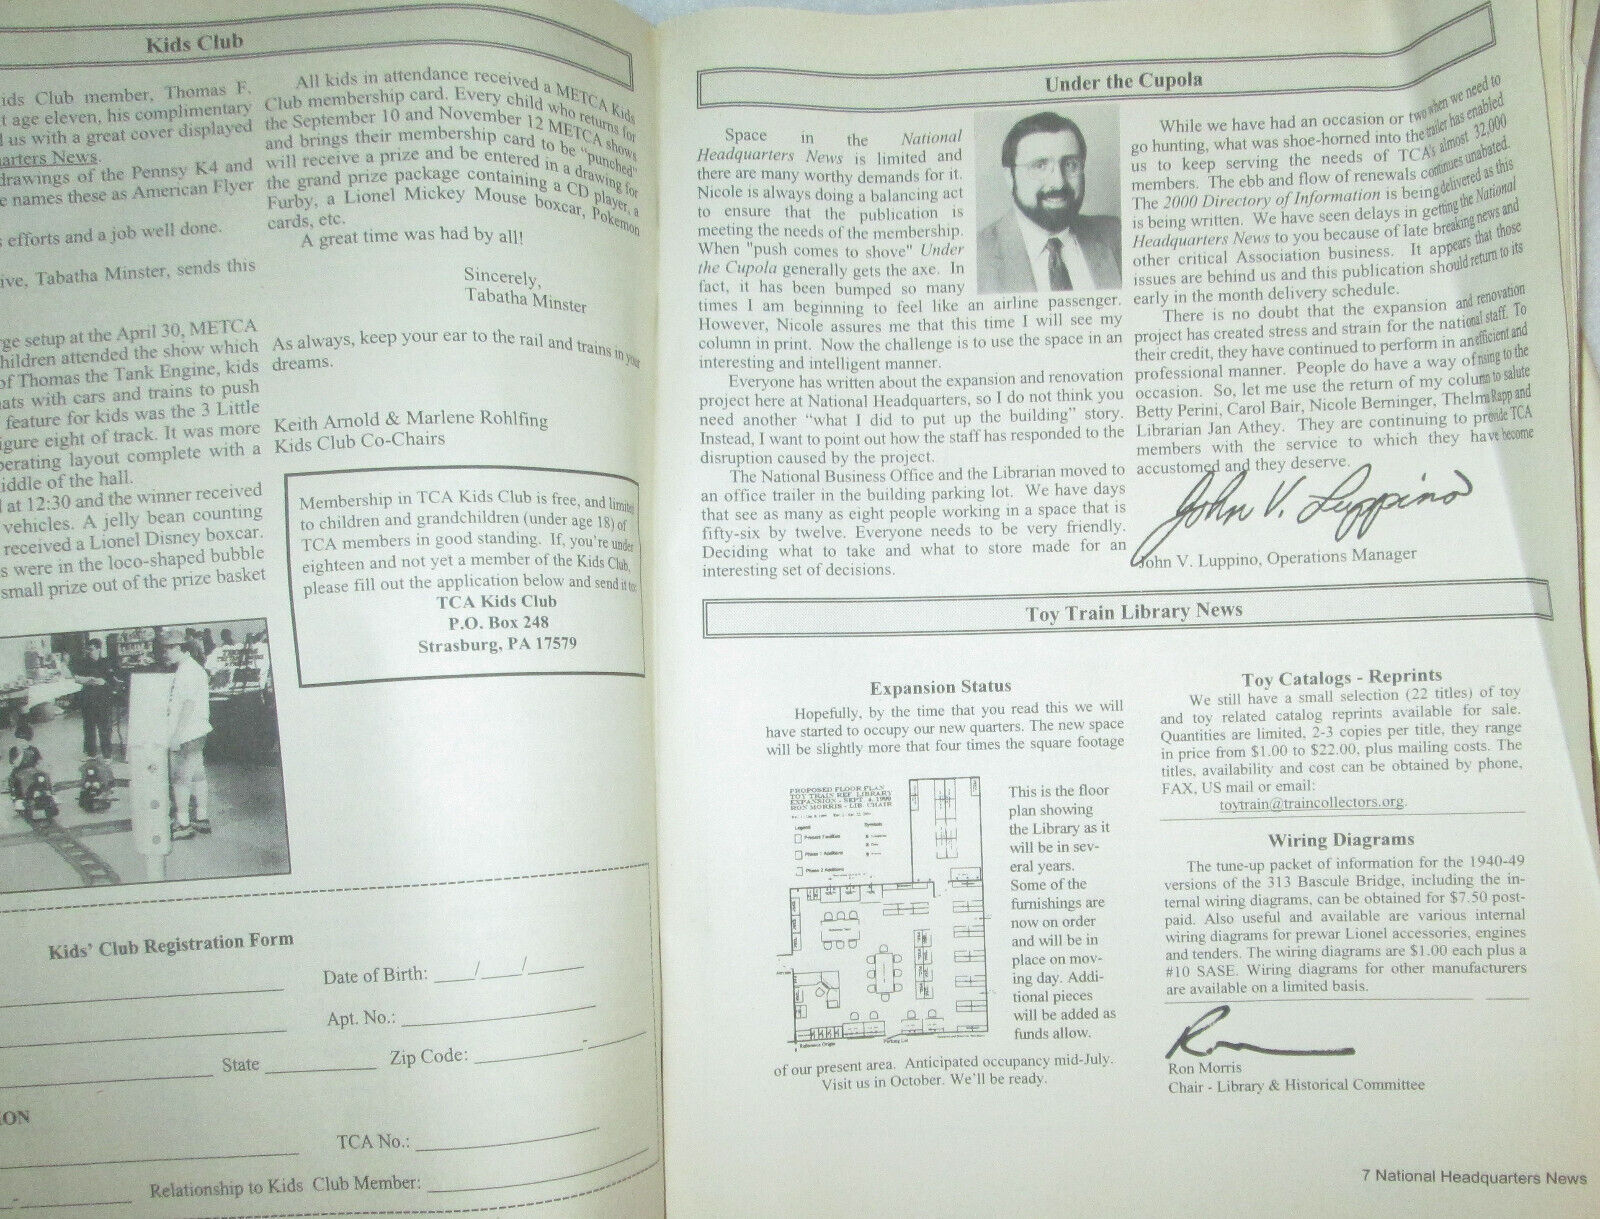 Kids Club
ids Club member, Thomas F.
t age eleven, his complimentary
l us with a great cover displayed
arters News.
drawings of the Pennsy K4 and
e names these as American Flyer
s efforts and a job well done.
ive, Tabatha Minster, sends this
rge setup at the April 30, METCA
children attended the show which
of Thomas the Tank Engine, kids
ats with cars and trains to push
feature for kids was the 3 Little
igure eight of track. It was more
perating layout complete with a
iddle of the hall.
l at 12:30 and the winner received
vehicles. A jelly bean counting
received a Lionel Disney boxcar.
s were in the loco-shaped bubble
small prize out of the prize basket
All kids in attendance received a METCA Kids
Club membership card. Every child who returns for
the September 10 and November 12 METCA shows
and brings their membership card to be "punched"
will receive a prize and be entered in a drawing for
the grand prize package containing a CD player, a
Furby, a Lionel Mickey Mouse boxcar, Pokemon
cards, etc.
A great time was had by all!
Sincerely,
Tabatha Minster
As always, keep your ear to the rail and trains in your
dreams.
Keith Arnold & Marlene Rohlfing
Kids Club Co-Chairs
Membership in TCA Kids Club is free, and limited
to children and grandchildren (under age 18) of
TCA members in good standing. If, you're under
eighteen and not yet a member of the Kids Club,
please fill out the application below and send it to:
TCA Kids Club
P.O. Box 248
Strasburg, PA 17579
Kids' Club Registration Form
Date of Birth: ____/____/______
Apt. No.:
State
Zip Code:
ON
TCA No.:
Relationship to Kids Club Member:
Under the Cupola
Space in the National
Headquarters News is limited and
there are many worthy demands for it.
Nicole is always doing a balancing act
to ensure that the publication is
meeting the needs of the membership.
When "push comes to shove" Under
the Cupola generally gets the axe. In
fact, it has been bumped so many
times I am beginning to feel like an airline passenger.
However, Nicole assures me that this time I will see my
column in print. Now the challenge is to use the space in an
interesting and intelligent manner.
Everyone has written about the expansion and renovation
project here at National Headquarters, so I do not think you
need another "what I did to put up the building" story.
Instead, I want to point out how the staff has responded to the
disruption caused by the project.
The National Business Office and the Librarian moved to
an office trailer in the building parking lot. We have days
that see as many as eight people working in a space that is
fifty-six by twelve. Everyone needs to be very friendly.
Deciding what to take and what to store made for an
interesting set of decisions.
While we have had an occasion or two when we need to
go hunting, what was shoe-horned into the trailer has enabled
us to keep serving the needs of TCA's almost 32,000
members. The ebb and flow of renewals continues unabated.
The 2000 Directory of Information is being delivered as this
is being written. We have seen delays in getting the National
Headquarters News to you because of late breaking news and
other critical Association business. It appears that those
issues are behind us and this publication should return to its
early in the month delivery schedule.
There is no doubt that the expansion and renovation
project has created stress and strain for the national staff. To
their credit, they have continued to perform in an efficient and
professional manner. People do have a way of rising to the
occasion. So, let me use the return of my column to salute
Betty Perini, Carol Bair, Nicole Berninger, Thelma Rapp and
Librarian Jan Athey. They are continuing to provide TCA
members with the service to which they have become
accustomed and they deserve.
John V. Luppino
John V. Luppino, Operations Manager
Toy Train Library News
Expansion Status
Hopefully, by the time that you read this we will
have started to occupy our new quarters. The new space
will be slightly more that four times the square footage
PROPOSED FLOOR PLAN
TOY TRAIN REF LIBRARY
EXPANSION - SEPT 4, 1999
RON MORRIS - LIB. CHAIR
Legend
Symbols
Present Facilities
Phase 1 Additions
Phase 2 Additions
Reference Origin
Parking Lot
This is the floor
plan showing
the Library as it
will be in sev-
eral years.
Some of the
furnishings are
now on order
and will be in
place on mov-
ing day. Addi-
tional pieces
will be added as
funds allow.
of our present area. Anticipated occupancy mid-July.
Visit us in October. We'll be ready.
Toy Catalogs - Reprints
We still have a small selection (22 titles) of toy
and toy related catalog reprints available for sale.
Quantities are limited, 2-3 copies per title, they range
in price from $1.00 to $22.00, plus mailing costs. The
titles, availability and cost can be obtained by phone,
FAX, US mail or email:
toytrain@traincollectors.org.
Wiring Diagrams
The tune-up packet of information for the 1940-49
versions of the 313 Bascule Bridge, including the in-
ternal wiring diagrams, can be obtained for $7.50 post-
paid. Also useful and available are various internal
wiring diagrams for prewar Lionel accessories, engines
and tenders. The wiring diagrams are $1.00 each plus a
#10 SASE. Wiring diagrams for other manufacturers
are available on a limited basis.
Ron
Ron Morris
Chair - Library & Historical Committee
7 National Headquarters News